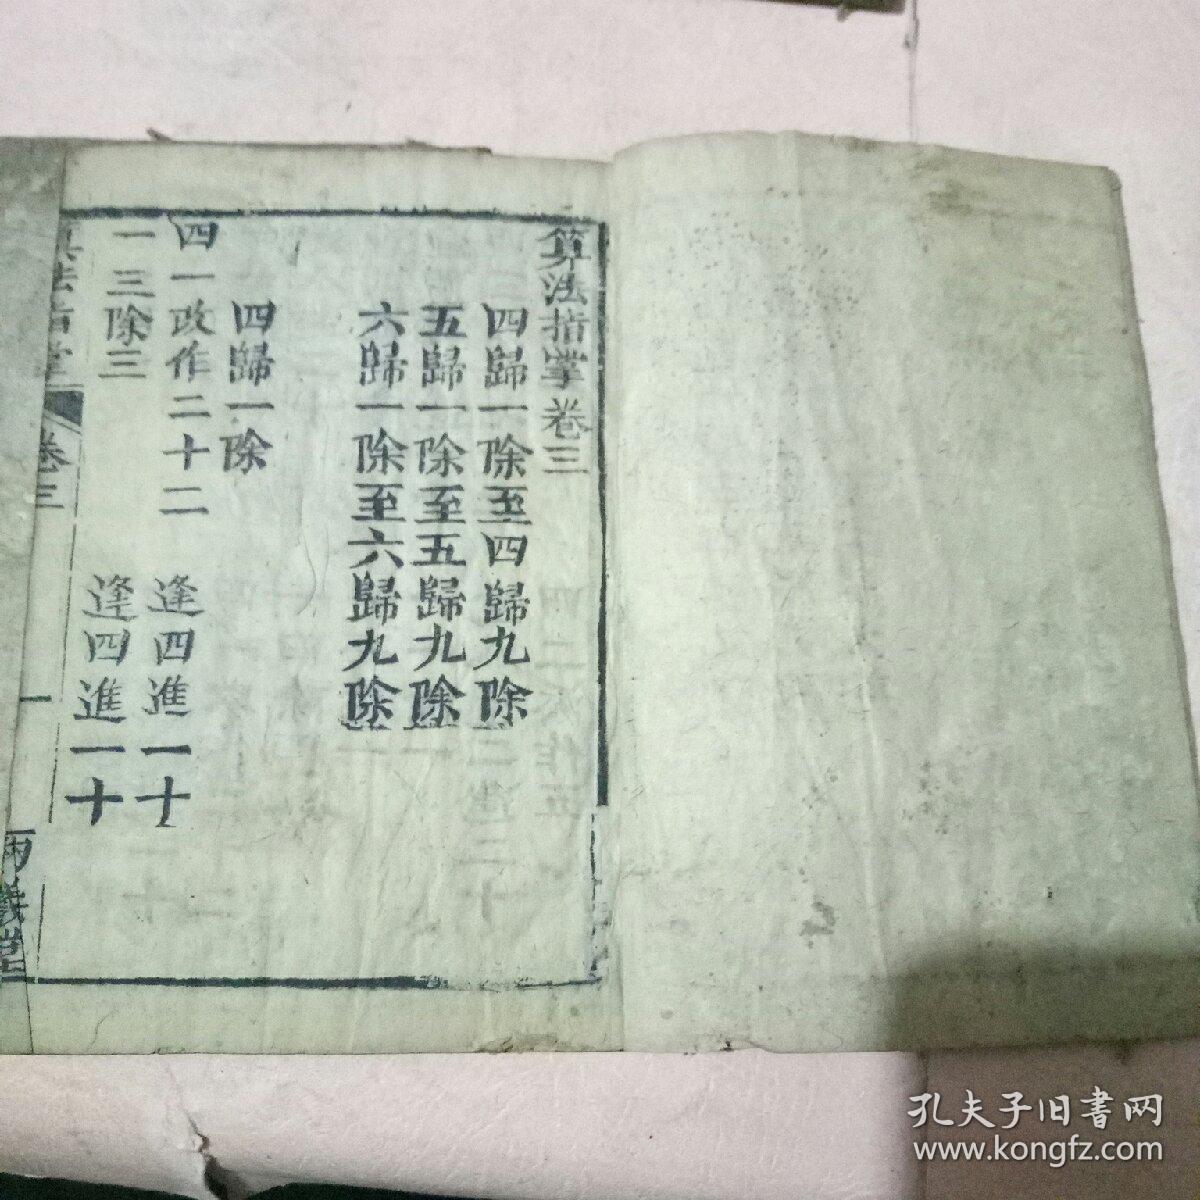 算法指掌卷三
四歸一除至四歸九除
五歸一除至五歸九除
六歸一除至六歸九除
四歸一除
四一改作二十二　逢四進一十
一三除三　逢四進一十
算法指掌　卷三　一　兩儀堂
孔夫子旧書网
www.kongfz.com